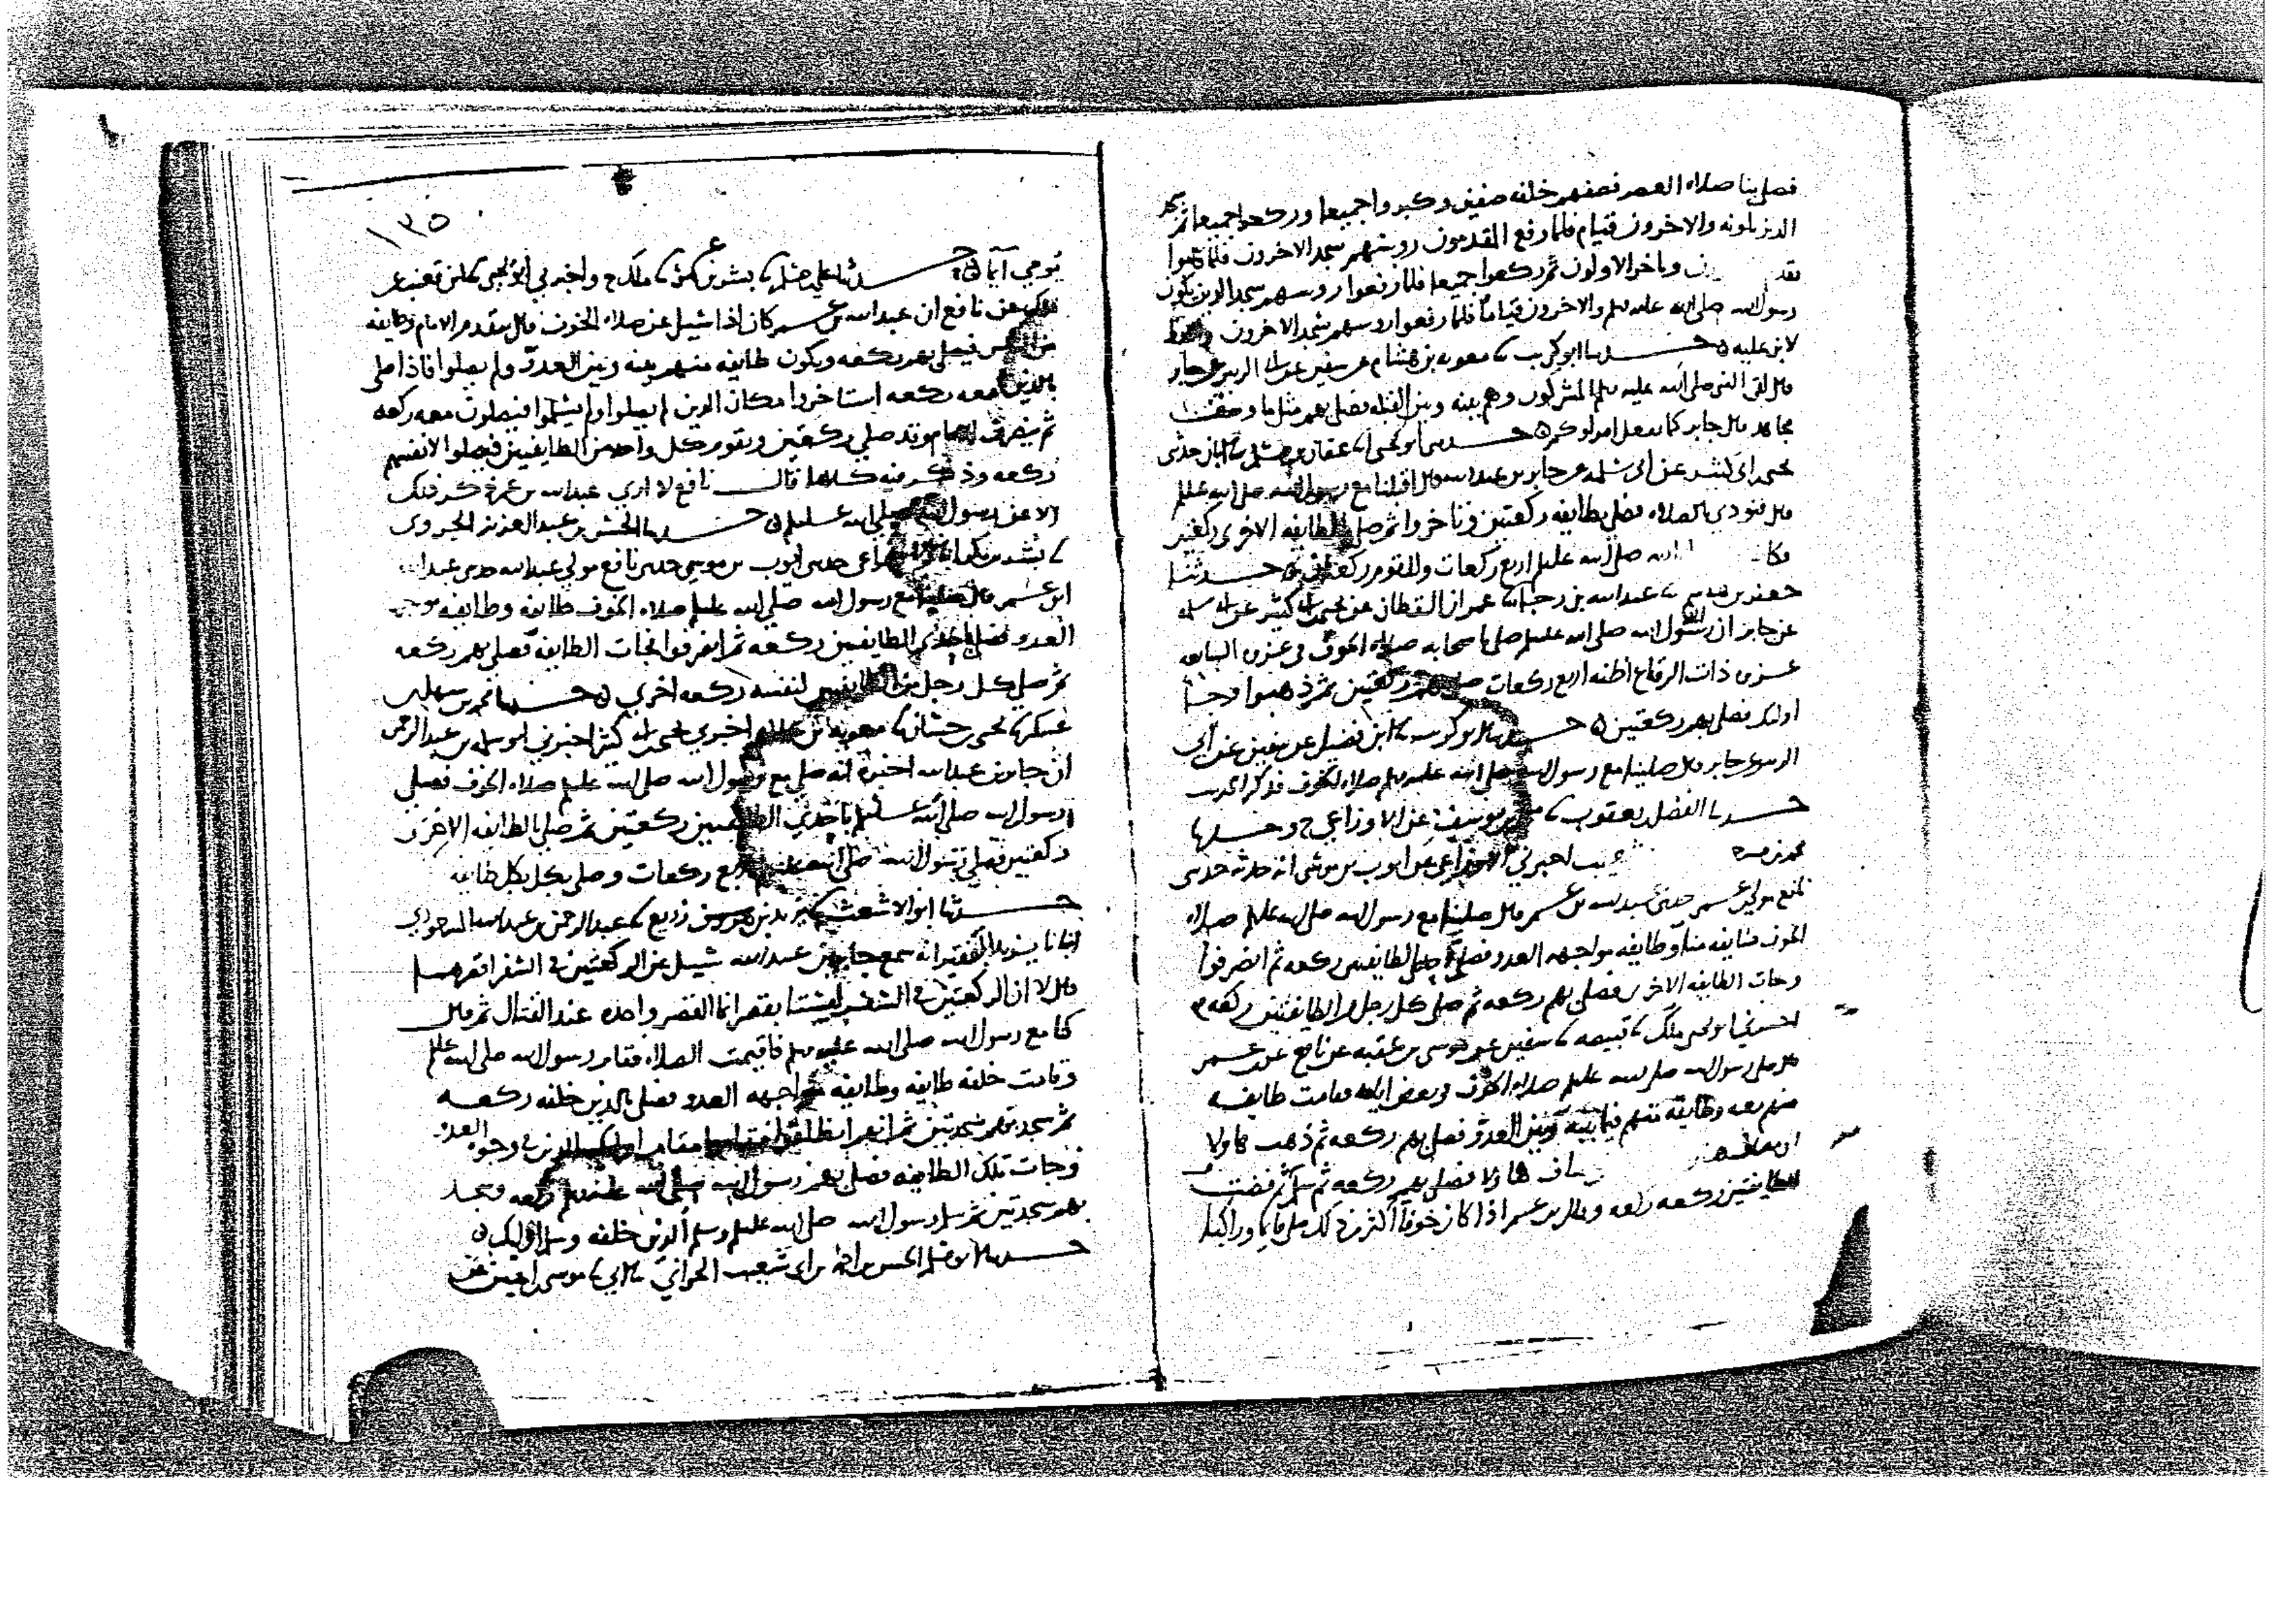 فصلى بنا صلاه العصر فصفهم خلفه صفين وكبروا جميعا وركعوا جميعا ثم سجد
الذين يلونه والاخرون قيام فلما رفع المقدمون روسهم سجد الاخرون فلما قاموا
تقد ن وتاخر الاولون ثم ركعوا جميعا فلما رفعوا روسهم سجد الذين يلون
رسول الله صلى الله عليه وسلم والاخرون قياما فلما رفعوا روسهم سجد الاخرون
لابن عليه ه حدثنا ابو كريب نا معويه بن هشام عن سفين عن ابى الزبير عن جابر
قال لقى النبي صلى الله عليه وسلم المشركون وهم بينه وبين القبله فصلى بهم مثل ما وصفت
مجاهد قال جابر كما يفعل امراوكم ه حدثنى ابو يحيى نا عفان بن مسلم نا ابان حدثنى
يحيى بن ابى كثير عن ابى سلمه عن جابر بن عبد الله قال اقبلنا مع رسول الله صلى الله عليه وسلم
قال فنودي بالصلاه فصلى بطايفه ركعتين وتاخروا ثم صلى بالطايفه الاخرى ركعتين
فكا الله صلى الله عليه وسلم اربع ركعات وللقوم ركعتان ه حدثنا
جعفر بن نا عبد الله بن رجا نا عمران القطان عن يحيى بن ابى كثير عن ابى سلمه
عن جابر ان رسول الله صلى الله عليه وسلم صلى باصحابه صلاه الخوف فى غزوه السابعه
غزوه ذات الرقاع اظنه اربع ركعات صلى بهم ركعتين ثم ذهبوا وجا
اوليك فصلى بهم ركعتين ه حدثنا ابو كريب نا ابن فضيل عن سفين عن ابى
الزبير عن جابر قال صلينا مع رسول الله صلى الله عليه وسلم صلاه الخوف فذكر الحديث
حدثنا الفضل بن يعقوب نا محمد بن يوسف عن الاوزاعي ح وحدثنا
محمد بن اخبرني الاوزاعي عن ايوب بن موسى انه حدثه حدثنى
نافع مولى ابن عمر حدثنى عبد الله بن عمر قال صلينا مع رسول الله صلى الله عليه وسلم صلاه
الخوف طايفه منا وطايفه مواجهه العدو فصلى باحدى الطايفتين ركعه ثم انصرفوا
وجات الطايفه الاخرى فصلى بهم ركعه ثم صلى كل رجل من الطايفتين ركعه
اخبرنى ابو يحيى بن ملك نا قبيصه نا سفين عن موسى بن عقبه عن نافع عن ابن عمر
قال صلى رسول الله صلى الله عليه وسلم صلاه الخوف فى بعض ايامه فقامت طايفه
منهم معه وطايفه منهم فيما بينه وبين العدو فصلى بهم ركعه ثم ذهب هاولا
هاولا فصلى بهم ركعه ثم سلم ثم قضت
الطايفتين ركعه ركعه وقال ابن عمر اذا كان خوفا اكثر من ذلك صلى قايما وراكبا
١٣٥
تومي ايما ه حدثنا على بن مسلم نا بشر بن عمر نا ملك ح واخبرنى ابو يحيى نا ابن قعنب عن
ملك عن نافع ان عبد الله بن عمر كان اذا سيل عن صلاه الخوف قال يتقدم الامام وطايفه
من الناس فيصلى بهم ركعه ويكون طايفه منهم بينه وبين العدو ولم يصلوا فاذا صلى
بالذين معه ركعه استاخروا مكان الذين لم يصلوا ولم يسلموا فيصلون معه ركعه
ثم ينصرف الامام وقد صلى ركعتين ويقوم كل واحد من الطايفتين فيصلوا لانفسهم
ركعه وذكر فيه كلاما قال نافع لا ارى عبد الله بن عمر ذكر ذلك
الا عن رسول الله صلى الله عليه وسلم ه حدثنا الحسن بن عبد العزيز الجروى
نا بشر بن بكر انا الاوزاعى حدثنى ايوب بن موسى حدثنى نافع مولى عبد الله حدثنى عبد الله
ابن عمر قال صلينا مع رسول الله صلى الله عليه وسلم صلاه الخوف طايفه وطايفه
العدو فصلى باحدى الطايفتين ركعه ثم انصرفوا فجات الطايفه فصلى بهم ركعه
ثم صلى كل رجل من الطايفتين لنفسه ركعه اخرى ه حدثنا محمد بن سهل بن
عسكر نا يحيى بن حسان نا معويه بن سلام اخبرنى يحيى بن ابى كثير اخبرنى ابو سلمه بن عبد الرحمن
ان جابر بن عبد الله اخبره انه صلى مع رسول الله صلى الله عليه وسلم صلاه الخوف فصلى
رسول الله صلى الله عليه وسلم باحدى الطايفتين ركعتين ثم صلى بالطايفه الاخرى
ركعتين فصلى رسول الله صلى الله عليه وسلم اربع ركعات وصلى بكل طايفه
حدثنا ابو الاشعث نا يزيد بن زريع نا عبد الرحمن بن عبد الله المسعودي
انبانا يزيد الفقير انه سمع جابر بن عبد الله سيل عن الركعتين فى السفر اقصرهما
قال لا ان الركعتين فى السفر ليستا بقصر انما القصر واحده عند القتال ثم قال
كنا مع رسول الله صلى الله عليه وسلم فاقيمت الصلاه فقام رسول الله صلى الله عليه وسلم
وقامت خلفه طايفه وطايفه مواجهه العدو فصلى بالذين خلفه ركعه
ثم سجد بهم سجدتين ثم انهم انطلقوا فقاموا مقام اوليك الذين فى وجوه العدو
وجات تلك الطايفه فصلى بهم رسول الله صلى الله عليه وسلم ركعه وسجد
بهم سجدتين ثم سلم رسول الله صلى الله عليه وسلم وسلم الذين خلفه وسلم اوليك ه
حدثنا ابو مسلم الحسن بن احمد بن ابى شعيب الحراني نا موسى بن اعين عن